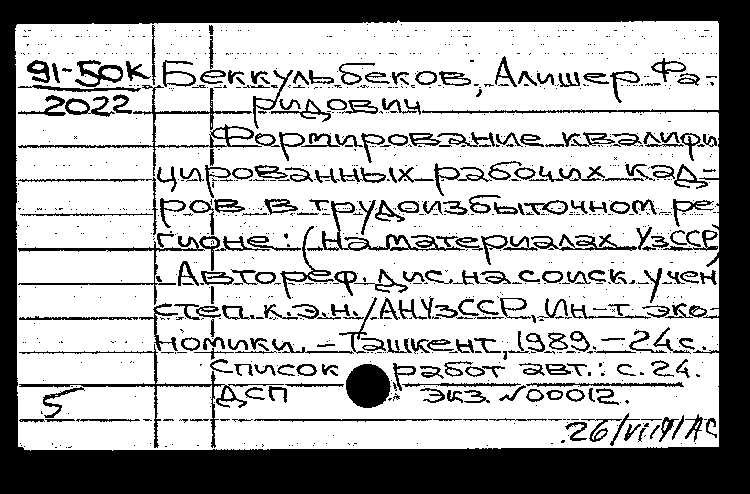 91-50К Беккульбеков, Алишер Фа-
2022 ридович
Формирование квалифи
цированных рабочих кад-
ров в трудоизбыточном ре-
гионе: (На материалах УзССР)
: Автореф. дис. на соиск. учен
степ. к.э.н. / АН УзССР, Ин-т эко-
номики. - Ташкент, 1989. - 24 с.
Список работ авт.: с. 24.
5 ДСП экз. №00012.